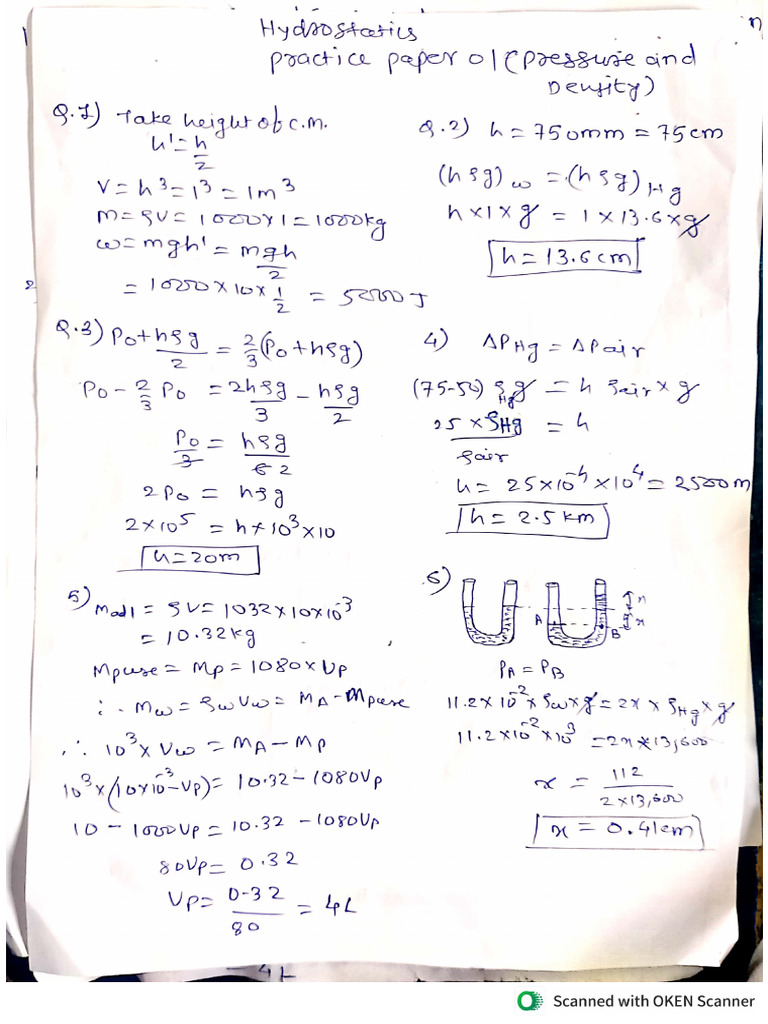 Hydrostatics
practice paper 01 (pressure and
Density)
Q.1) Take height of c.m.
h' = h/2
V = h³ = 1³ = 1m³
m = ρV = 1000×1 = 1000kg
ω = mgh' = mgh/2
= 1000×10×1/2 = 5000J
Q.2) h = 750mm = 75cm
(hρg)ω = (hρg)Hg
h×1×g = 1×13.6×g
h = 13.6cm
Q.3) P₀+hρg/2 = 2/3(P₀+hρg)
P₀ - 2/3 P₀ = 2hρg/3 - hρg/2
P₀/3 = hρg/6 2
2P₀ = hρg
2×10⁵ = h×10³×10
h=20m
4) ΔPHg = ΔPair
(75-50) ρHg g = h ρair × g
25 × ρHg/ρair = h
h = 25×10⁻² ×10⁴ = 2500m
h = 2.5 km
5) Mad1 = ρV = 1032×10×10⁻³
= 10.32kg
Mpure = Mp = 1080×Vp
∴ Mω = ρωVω = MA-Mpure
∴ 10³×Vω = MA-Mp
10³×(10×10⁻³-Vp) = 10.32-1080Vp
10 - 1000Vp = 10.32 - 1080Vp
80Vp = 0.32
Vp = 0.32/80 = 4L
6)
A
B
x
x
PA = PB
11.2×10⁻²×ρω×g = 2x × ρHg × g
11.2×10⁻²×10³ = 2x×13,600
x = 112/2×13,600
x = 0.41cm
4L
Scanned with OKEN Scanner